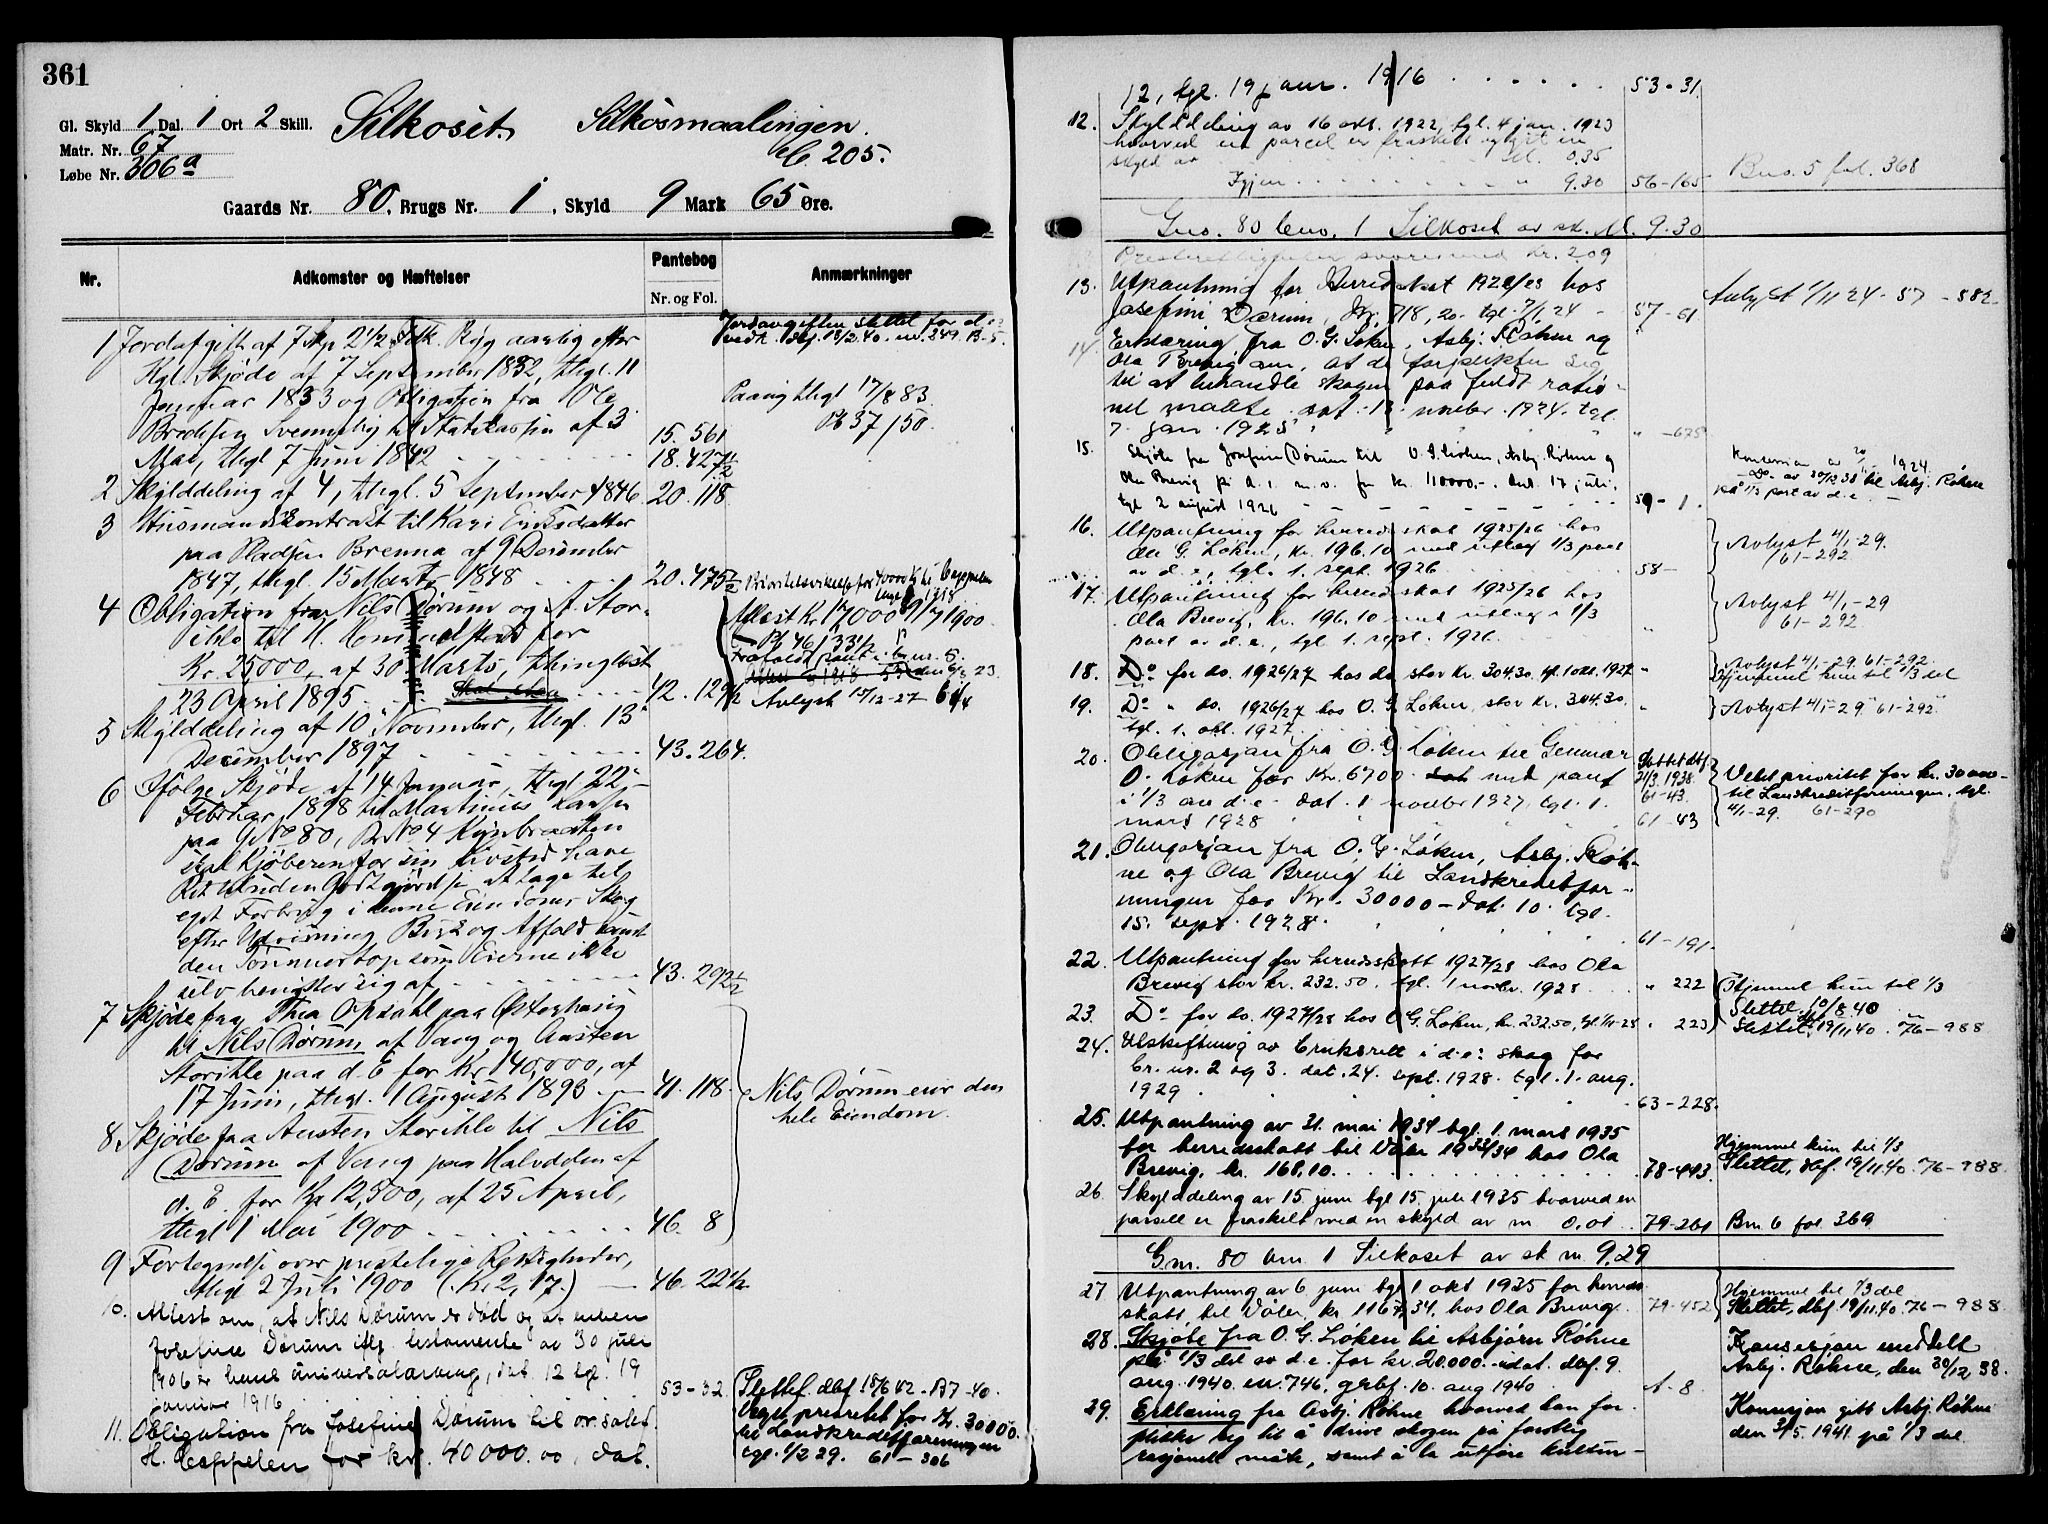 361
Gl. Skyld 1 Dal. 1 Ort 2 Skill.
Matr. Nr. 67
Løbe Nr. 306a
Silkoset. Silkosmaalingen.
205.
Gaards Nr. 80, Brugs Nr. 1, Skyld 9 Mark 65 Øre.
Nr. Adkomster og Hæftelser Pantebog Anmærkninger
Nr. og Fol.
1 Jordafgift af 7 Skp 2 1/2 Fdk. Rug aarlig efter
Kgl. Skjøde af 7 September 1832, thgl. 11
Januar 1833 og Obligation fra Ole
til Statskassen af 3 15. 561
Mai, thgl 7 Juni 1842 18. 427 1/2
Jordavgiften slettet for d.e.
Paany thgl 17/8 83.
Pb 37/50.
2 Skylddeling af 4, thgl. 5 September 1846 20. 118
3 Husmandskontrakt til Kari Eriksdatter
paa Pladsen Brenna af 9 December
1847, thgl. 15 Marts 1848 20. 475 1/2
4 Obligation fra Nils Dørum og A. Stor-
ihle til H. for
Kr. 25000, af 30 Marts, thinglæst
23 April 1895 42. 129 1/2
Aflæst Kr 17,000 9/7 1900.
Pb 46/331 1/2
Avlyst 15/12-27 61/4
5 Skylddeling af 10 November, thgl. 13
December 1897 43. 264.
6 Ifølge Skjøde af 14 Januar, thgl 22
Februar 1898 til Martinus Larsen
paa GNo 80, BNo 4
skal Kjøberen for sin Livstid have
Ret til uden Godtgjørelse at tage til
eget Forbrug i denne Eiendoms Skog
efter Udvisning Brisk og Affald samt
den Tømmertop som Eierne ikke
selv benytter sig af 43. 292 1/2
7 Skjøde fra Thea Opsahl paa
til Nils Dørum af Vang og Austen
Storihle paa d. E for Kr 140,000, af
17 Juni, thgl. 1 August 1893 41. 118.
Nils Dørum eier den
hele Eiendom.
8 Skjøde fra Austen Storihle til Nils
Dørum af Vang paa Halvdelen af
d. E. for Kr 12,500, af 25 April,
thgl 1 Mai 1900 46. 8
9 Fortegnelse over prestelige Rettigheder,
thgl 2 Juli 1900 (Kr 2,17.) 46. 22 1/2
10. Attest om, at Nils Dørum er død og at enken
Josefine Dørum iflg. testamente av 30 juli
1906 er hans universalarving, dat. 12 tgl. 19
januar 1916 53-32.
11. Obligation fra Josefine Dørum til
H. Cappelen for kr. 40000.00, dat.
Slettet dbf. 18/6 42 - 
Veget prioritet for Kr. 30000.
til Landkreditforeningen
tgl. 1/2 29. 61-306
12, tgl. 19 januar. 1916 53-31.
12. Skylddeling av 16 okt. 1922, tgl. 4 jan. 1923
hvorved en parcel er fraskilt
skyld av 0.35
Igjen 9.30 56-165 Bno. 5 fol. 368
Gno. 80 bno. 1 Silkoset av sk. M. 9.30
Presterettigheter svares med kr. 2,09
13. Utpantning for Herredskat 1922/23 hos
Josefine Dørum, Kr. 718,20. tgl. 7/1 24 57-61
Avlyst 1/11 24 - 57 - 582
14. Erklæring fra O. G. Løken, Asbj. Røhne og
Ola Brevig om, at de forplikter sig
til at behandle skogen paa fuldt ratio-
nel maate. dat. 13. novbr. 1924. tgl.
7. jan. 1925 " -675
15. Skjøte fra Josefine Dørum til O. G. Løken, Asbj. Røhne og
Ola Brevig på d. e. m. v. for kr. 110000,-. Dat. 17 juli,
tgl 2 august 1926 59-1.
Konsesjon av 1924.
Do. av 30/12 38 til Asbj. Røhne
på 1/3 part av d.e.
16. Utpantning for herredsskat 1925/26 hos
Ole G. Løken, kr. 196.10 med utlæg i 1/3 part
av d.e., tgl. 1. sept. 1926 58- Avlyst 4/1-29.
61-292
17. Utpantning for herredsskat 1925/26 hos
Ola Brevig, Kr. 196.10 med utlæg i 1/3
part av d.e., tgl. 1. sept. 1926. " Avlyst 4/1-29
61-292
18. Do for do. 1926/27 hos do stor kr. 304.30. tgl. 1 okt. 1927 "
Avlyst 4/1-29. 61-292.
Hjemmel kun til 1/3 del
19. Do " do. 1926/27 hos O. G. Løken, stor kr. 304.30.
tgl. 1. okt. 1927 " Avlyst 4/1-29 61-292
20. Obligasjon fra O. G. Løken til Gunnar
O. Løken for Kr. 6700 med pant
i 1/3 av d.e. dat. 1 novbr 1927, tgl. 1.
mars 1928 61-43
Slettet dbf
21/3. 1938
61-43.
Veket prioritet for kr. 30000-
til Landkreditforeningen, tgl.
4/1-29. 61-290
21. Obligasjon fra O. G. Løken, Asbj. Røh-
ne og Ola Brevig til Landkreditfor-
eningen for Kr. 30000 - dat. 10. tgl.
15. sept. 1928 61-191.
22. Utpantning for herredsskatt 1927/28 hos Ola
Brevig stor kr. 232.50. tgl. 1 novbr. 1928 " 222 Hjemmel kun til 1/3
Slettet 10/8 40
23. Do for do. 1927/28 hos O. G. Løken, kr. 232,50, tgl. 1/11-28 " 223 Slettet 19/11.40. 76-988
24. Utskiftning av bruksrett i d.e.s skog for
br. nr. 2 og 3. dat. 24. sept. 1928. tgl. 1. aug.
1929 63-228.
25. Utpantning av 31. mai 1934 tgl. 1. mars 1935
for herredsskatt til Våler 1933/34 hos Ola
Brevig, kr. 168,10. 78-443.
Hjemmel kun til 1/3
Slettet, dbf. 19/11.40. 76-988
26. Skylddeling av 15. juni tgl 15. juli 1935 hvorved en
parsell er fraskilt med en skyld av m 0,01 79-261 Bnr 6 fol 369
Gnr. 80 bnr. 1 Silkoset av sk m. 9,29
27 Utpantning av 6 juni tgl 1 okt 1935 for herreds-
skatt til Våler, kr 116,34, hos Ola Brevig. 79-452
Hjemmel til 1/3 del
Slettet, dbf. 19/11.40. 76-988
28. Skjøte fra O. G. Løken til Asbjørn Røhne
på 1/3 del av d.e. for kr. 20.000.- dat. dbf. 9.
aug. 1940. nr. 746, grbf. 10. aug 1940 A-8.
Konsesjon meddelt
Asbj. Røhne, den 30/12 38.
29. Erklæring fra Asbj. Røhne hvorved han for-
plikter seg til å drive skogen på forstlig
rasjonell måte, samt å la utføre kultur-
Konsesjon gitt Asbj. Røhne
den 3/5. 1941 på 1/3 del